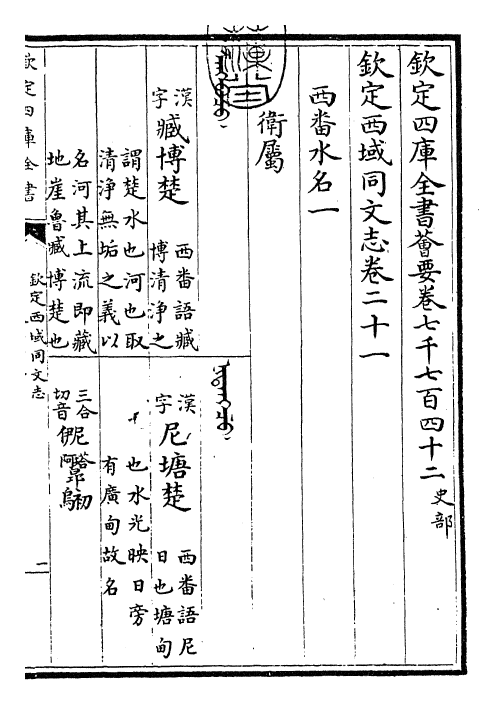 欽定四庫全書薈要卷七千七百四十二 史部
欽定西域同文志卷二十一
西番水名一
衛屬
漢字 臧博楚 西番語臧
博清淨之
謂楚水也河也取
清淨無垢之義以
名河其上流即藏
地崖魯臧博楚也
漢字 尼塘楚 西番語尼
日也塘甸
也水光映日旁
有廣甸故名
三合切音 伊尼 阿塔 昂 烏初
欽定四庫全書
欽定西域同文志
一